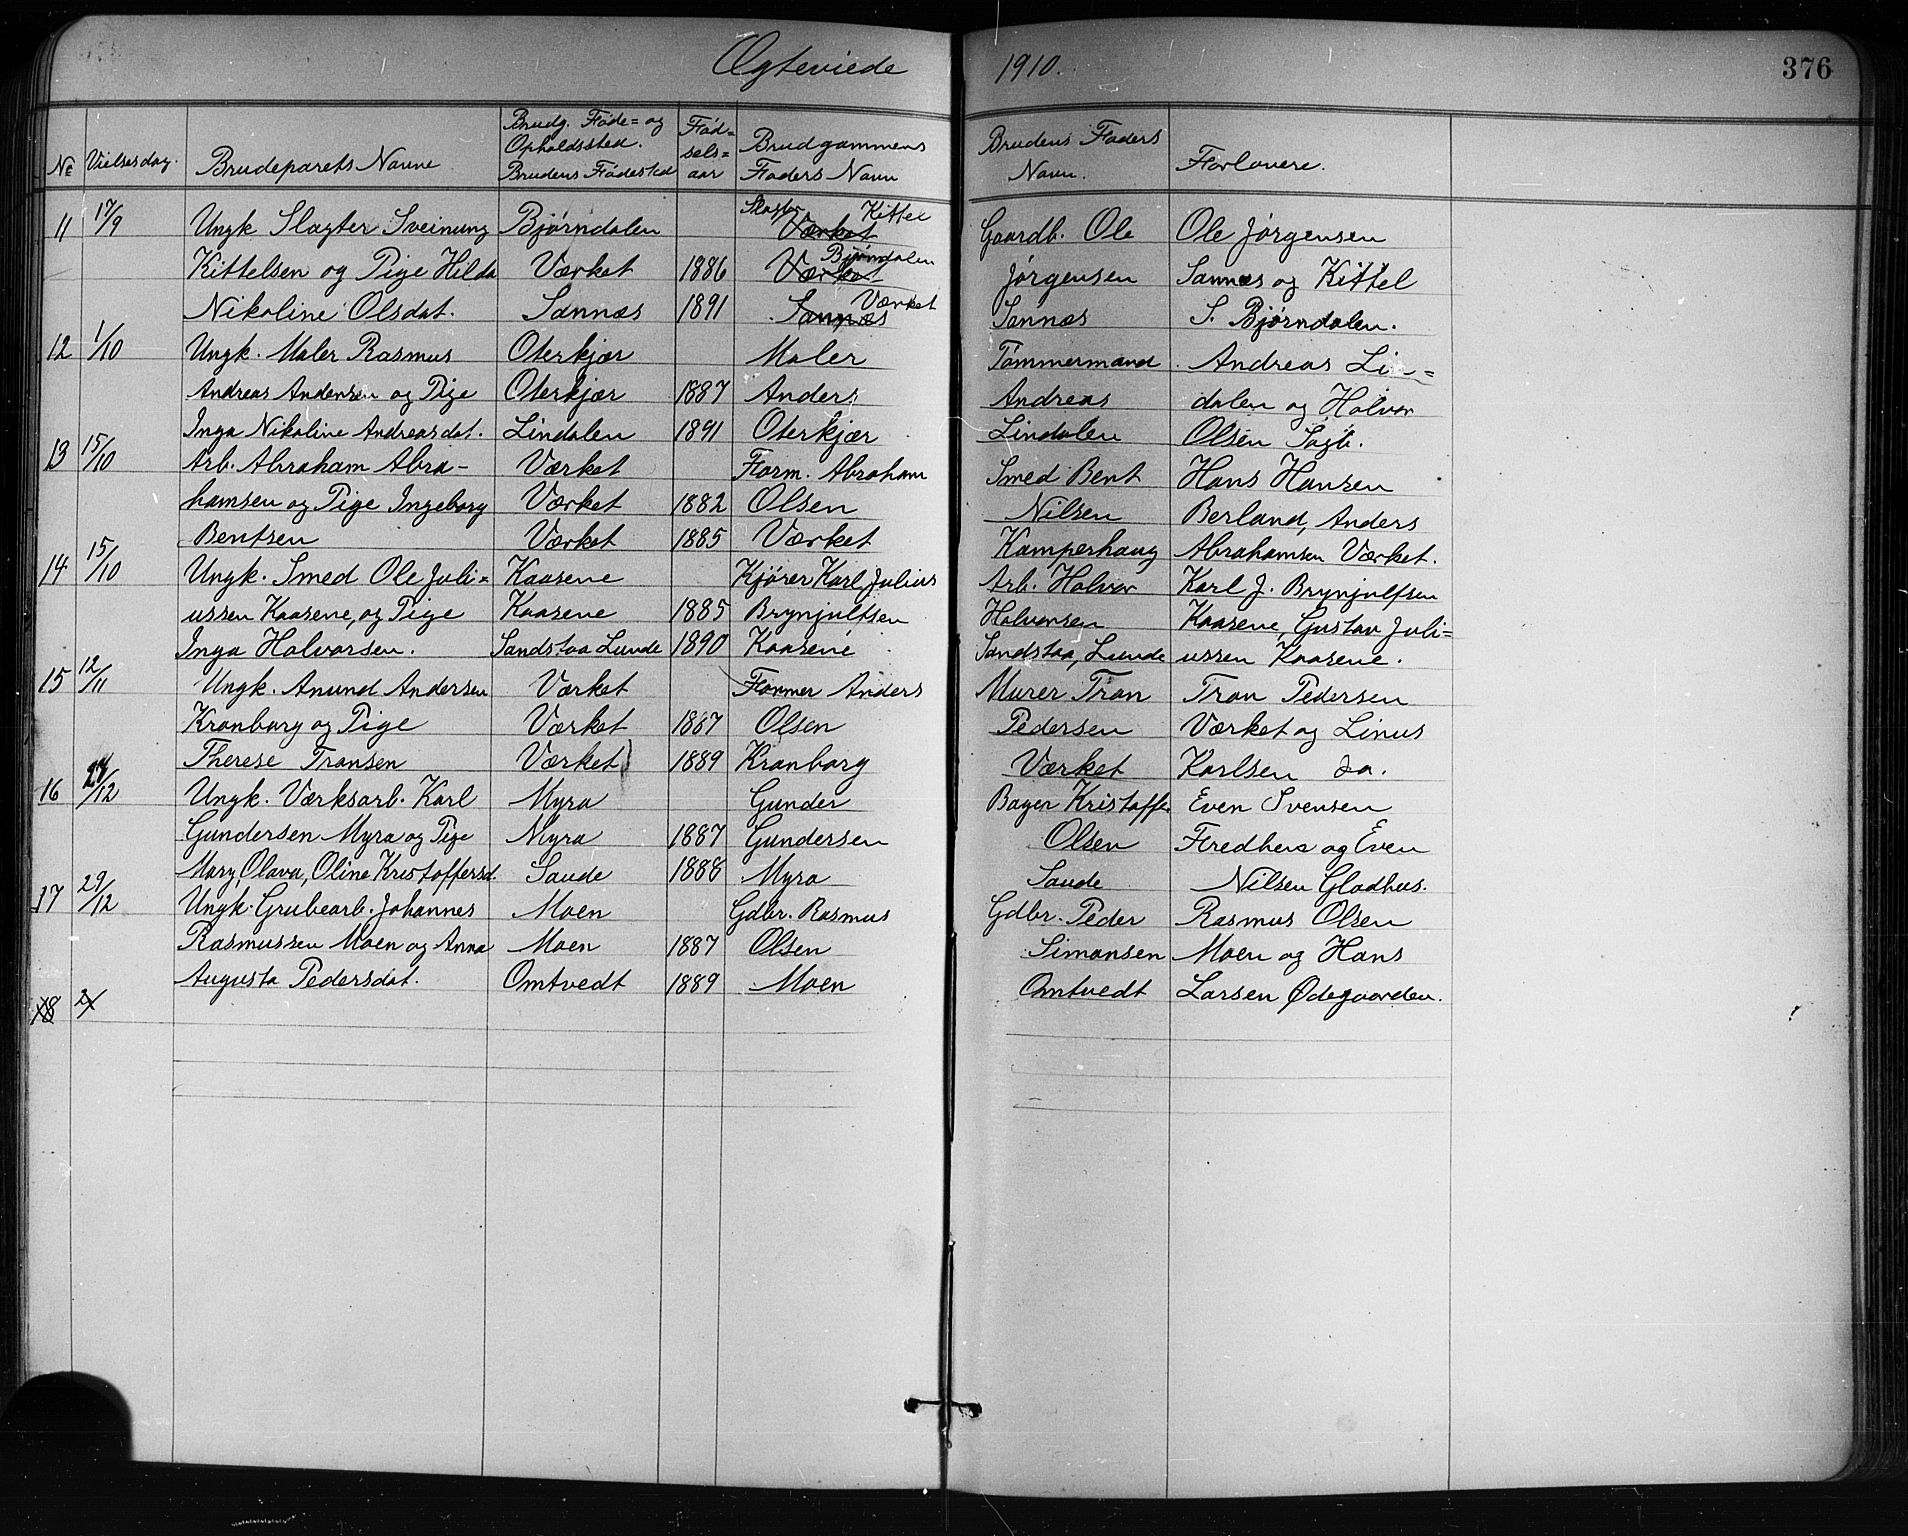 Ægteviede 1910. 376
№ Vielsesdag. Brudeparets Navne Brudg. Føde= og Opholdssted. Brudens Fødested Fød=sels=aar Brudgommens Faders Navn Brudens Faders Navn. Forlovere.
11 17/9 Ungk Slagter Sveinung Bjørndalen Slagter Værket Kittel Gaardb. Ole Ole Jørgensen
Kittelsen og Pige Hilda Værket 1886 Værket Bjørndalen Jørgensen Sannes og Kittel
Nikoline Olsdat. Sannæs 1891 Sannæs Værket Sannæs S. Bjørndalen.
12 1/10 Ungk. Maler Rasmus Oterkjær Maler Tømmermand Andreas Lin=
Andreas Andersen og Pige Oterkjær 1887 Anders Andreas dalen og Halvor
Inga Nikoline Andreasdat. Lindalen 1891 Oterkjær Lindalen Olsen Sagb.
13 15/10 Arb. Abraham Abra- Værket Form. Abraham Smed Bent Hans Hansen
hamsen og Pige Ingeborg Værket 1882 Olsen Nilsen Berland, Anders
Bentsen Værket 1885 Værket Kamperhaug Abrahamsen Værket.
14 15/10 Ungk. Smed Ole Juli= Kaasene Kjører Karl Julius Arb. Halvor Karl J. Brynjulfsen
ussen Kaasene, og Pige Kaasene 1885 Brynjulfsen Halvorsen Kaasene, Gustav Juli=
Inga Halvorsen. Sandstaa Lunde 1890 Kaasene Sandstaa, Lunde ussen Kaasene.
15 12/11 Ungk. Anund Andersen Værket Former Anders Murer Tron Tron Pedersen
Kronborg og Pige Værket 1867 Olsen Pedersen Værket og Linus
Therese Tronsen Værket 1889 Kronborg Værket Karlsen do.
16 27/12 Ungk. Værksarb. Karl Myra Gunder Bager Kristoffer Even Svensen
Gundersen Myra og Pige Myra 1887 Gundersen Olsen Fredheis og Even
Mary, Olava, Oline Kristoffersd. Saude 1888 Myra Saude Nilsen Gladhus.
17 29/12 Ungk. Grubearb. Johannes Moen Gdbr. Rasmus Gdbr. Peder Rasmus Olsen
Rasmussen Moen og Anna Moen 1887 Olsen Simonsen Moen og Hans
Augusta Pedersdat. Omtvedt 1889 Moen Omtvedt Larsen Ødegaarden.
18 2